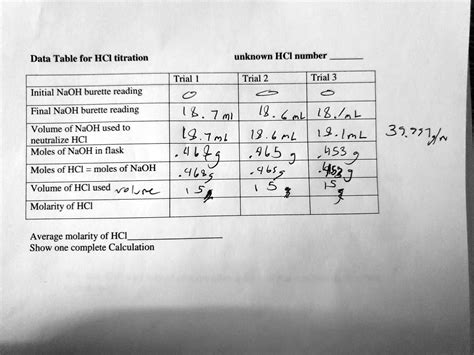 Data Table for HCl titration unknown HCl number ______
Trial 1 Trial 2 Trial 3
Initial NaOH burette reading 0 0 0
Final NaOH burette reading 18.7 ml 18.6 mL 18.1 mL
Volume of NaOH used to neutralize HCl 18.7 mL 18.6 mL 18.1 mL
Moles of NaOH in flask .468 g .465 g .453 g
Moles of HCl = moles of NaOH .468 g .465 g
Volume of HCl used volume 15 15 15
Molarity of HCl
Average molarity of HCl______________
Show one complete Calculation